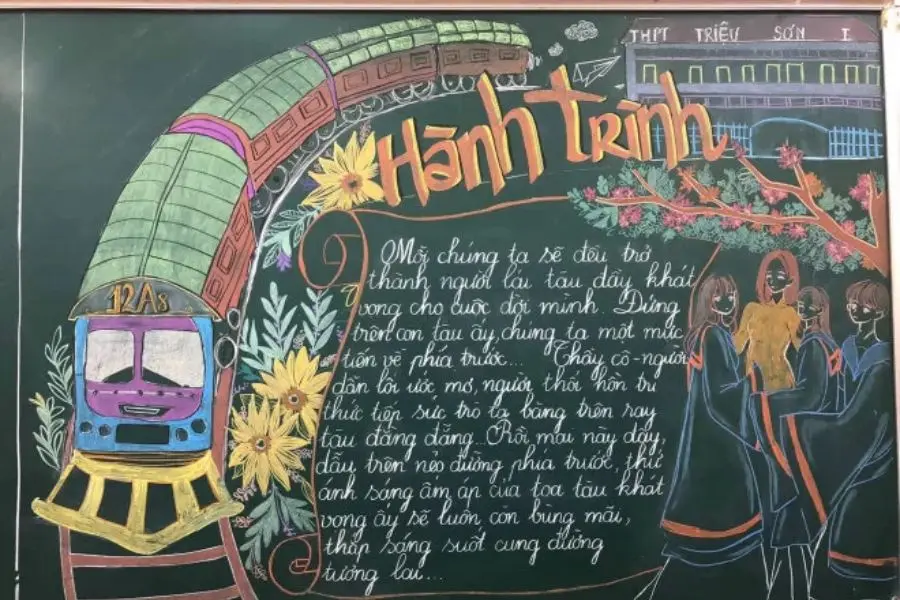 THPT TRIỆU SƠN I
Hành Trình
12A8
Mỗi chúng ta sẽ đều trở
thành người lái tàu đầy khát
vọng cho cuộc đời mình. Đứng
trên con tàu ấy, chúng ta một mực
tiến về phía trước... Thầy cô - người
dẫn lối ước mơ, người thổi hồn tri
thức tiếp sức trò ta băng trên ray
tàu đằng đẵng... Rồi mai này đây,
dẫu trên nẻo đường phía trước, thứ
ánh sáng ấm áp của toa tàu khát
vọng ấy sẽ luôn còn bùng mãi,
thắp sáng suốt cung đường
tương lai...